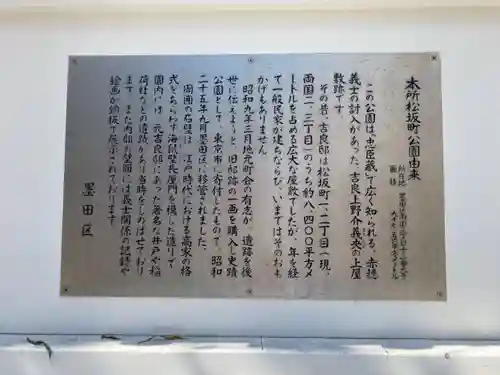 本所松坂町公園由来
所在地 墨田区両国三丁目十三番九号
面積 九七・五平方メートル
この公園は、「忠臣蔵」で広く知られる、赤穂
義士の討入があった、吉良上野介義央の上屋
敷跡です。
その昔、吉良邸は松坂町一、二丁目(現、
両国二、三丁目)のうち約八、四〇〇平方メ
ートルを占める広大な屋敷でしたが、年を経
て一般民家が建ちならび、いまではそのおも
かげもありません。
昭和九年三月地元町会の有志が、遺跡を後
世に伝えようと、旧邸跡の一画を購入し史蹟
公園として、東京市に寄付したもので、昭和
二十五年九月墨田区に移管されました。
周囲の石壁は、江戸時代における高家の格
式をあらわす海鼠壁長屋門を模した造りで、
園内には、元吉良邸にあった著名な井戸や稲
荷社などの遺跡があり当時をしのばせており
ます、また内部の壁面には義士関係の記録や
絵画が銅板で展示されております
墨田区